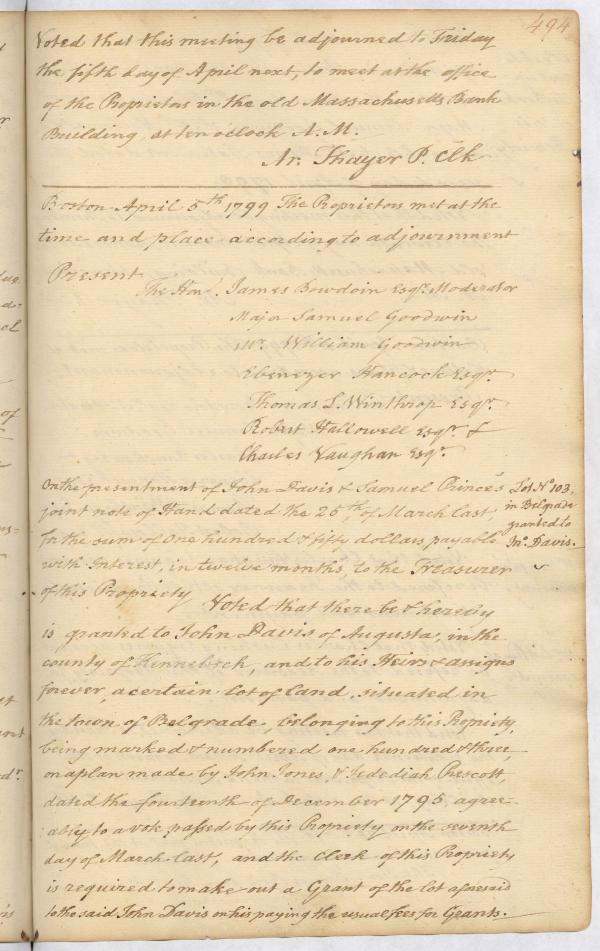 494
Voted that this meeting be adjourned to Friday
the fifth day of April next, to meet at the office
of the Proprietors in the old Massachusetts Bank
Building, at ten oclock A.M.
Ar. Thayer P. Clk
Boston April 5th 1799 The Proprietors met at the
time and place according to adjournment
Present
The Honl. James Bowdoin Esqr. Moderator
Major Samuel Goodwin
Mr. William Goodwin
Ebenezer Hancock Esqr.
Thomas L. Winthrop Esqr.
Robert Hallowell Esqr. &
Charles Vaughan Esqr.
On the presentment of John Davis & Samuel Prince's
joint note of Hand dated the 25th of March last,
for the sum of One hundred & fifty dollars payable
with Interest, in twelve months, to the Treasurer
of this Propriety
Lot No 103,
in Belgrade
granted to
Jno. Davis.
Voted that there be & hereby
is granted to John Davis of Augusta, in the
county of Kennebeck, and to his Heirs & assigns
forever, a certain lot of land, situated in
the town of Belgrade, belonging to this Propriety,
being marked & numbered one hundred & three,
on a plan made by John Jones, & Jedediah Prescott,
dated the fourteenth of December 1795, agree-
ably to a vote passed by this Propriety on the seventh
day of March last, and the Clerk of this Propriety
is required to make out a Grant of the lot aforesaid
to the said John Davis on his paying the usual fees for Grants.